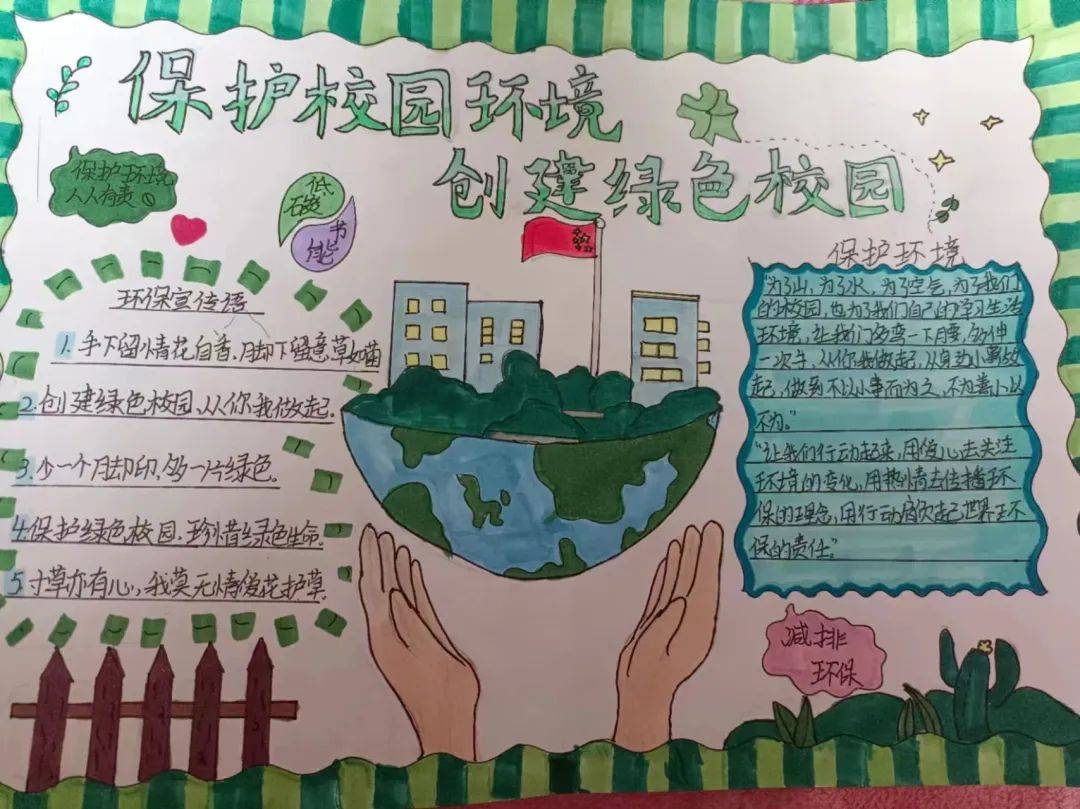 保护校园环境
创建绿色校园
保护环境
人人有责
低
碳
节
能
环保宣传语
1. 手下留情花自香，脚下留意草如茵
2. 创建绿色校园，从你我做起。
3. 少一个脚印，多一片绿色。
4. 保护绿色校园，珍惜绿色生命。
5. 寸草亦有心，我莫无情爱花护草
保护环境
"为了山，为了水，为了空气，为了我们
的校园，也为了我们自己的学习生活
环境，让我们多弯一下腰，多伸
一次手，从你我做起，从身边小事做
起，做到不以小事而为之，不为善小以
不为。"
"让我们行动起来，用爱心去关注
环境的变化，用热情去传播环
保的理念，用行动肩负起世界环
保的责任。"
减排
环保